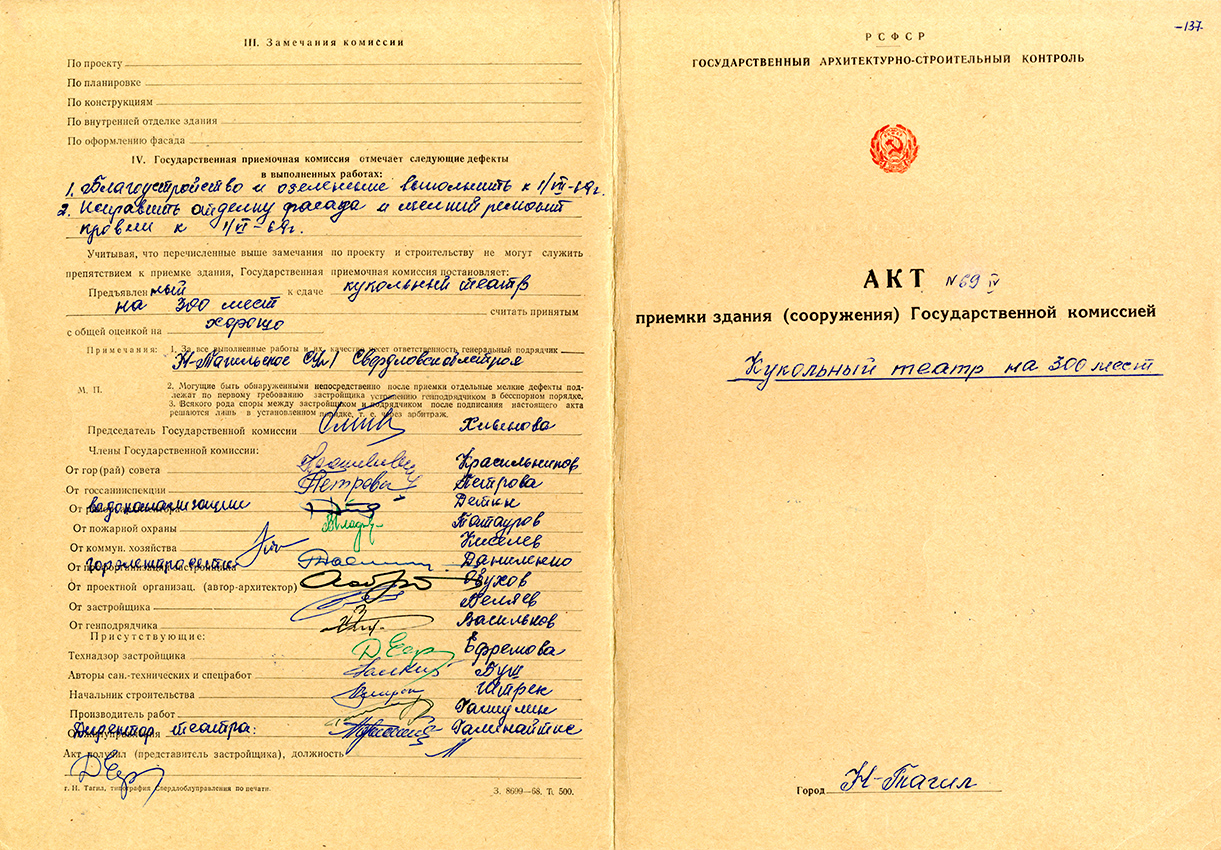 III. Замечания комиссии
По проекту
По планировке
По конструкциям
По внутренней отделке здания
По оформлению фасада
IV. Государственная приемочная комиссия отмечает следующие дефекты
в выполненных работах:
1. Благоустройство и озеленение выполнить к 1/VII-69г.
2. Исправить отделку фасада и мелкий ремонт
кровли к 1/VI-69г.
Учитывая, что перечисленные выше замечания по проекту и строительству не могут служить
препятствием к приемке здания, Государственная приемочная комиссия постановляет:
Предъявленный к сдаче кукольный театр
на 300 мест считать принятым
с общей оценкой на хорошо
Примечания: 1. За все выполненные работы и их качество несет ответственность генеральный подрядчик
Н-Тагильское Свердловскоблстроя
М. П. 2. Могущие быть обнаруженными непосредственно после приемки отдельные мелкие дефекты под-
лежат по первому требованию застройщика устранению генподрядчиком в бесспорном порядке.
3. Всякого рода споры между застройщиком и подрядчиком после подписания настоящего акта
решаются лишь в установленном порядке, т. е. через арбитраж.
Председатель Государственной комиссии Хлынова
Члены Государственной комиссии:
От гор(рай) совета Красильников
От госсанинспекции Петрова Петрова
От водоканализации Деткн
От пожарной охраны Татауров
От коммун. хозяйства Киселев
От горэлектросети Даниленко
От проектной организац. (автор-архитектор) Обухов
От застройщика Беляев
От генподрядчика Васильков
Присутствующие:
Технадзор застройщика Ефремова
Авторы сан.-технических и спецработ Буш
Начальник строительства Штрек
Производитель работ
Директор театра:
Акт получил (представитель застройщика), должность
г. Н. Тагил, типография Свердлоблуправления по печати. З. 8699—68. Т. 500.
-137-
РСФСР
ГОСУДАРСТВЕННЫЙ АРХИТЕКТУРНО-СТРОИТЕЛЬНЫЙ КОНТРОЛЬ
АКТ N 69 IV
приемки здания (сооружения) Государственной комиссией
Кукольный театр на 300 мест
Город Н-Тагил